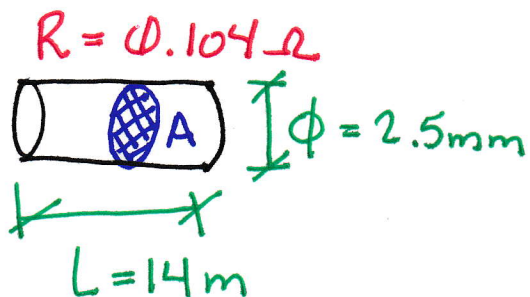 R = 0.104 Ω
A
ϕ = 2.5mm
L = 14 m